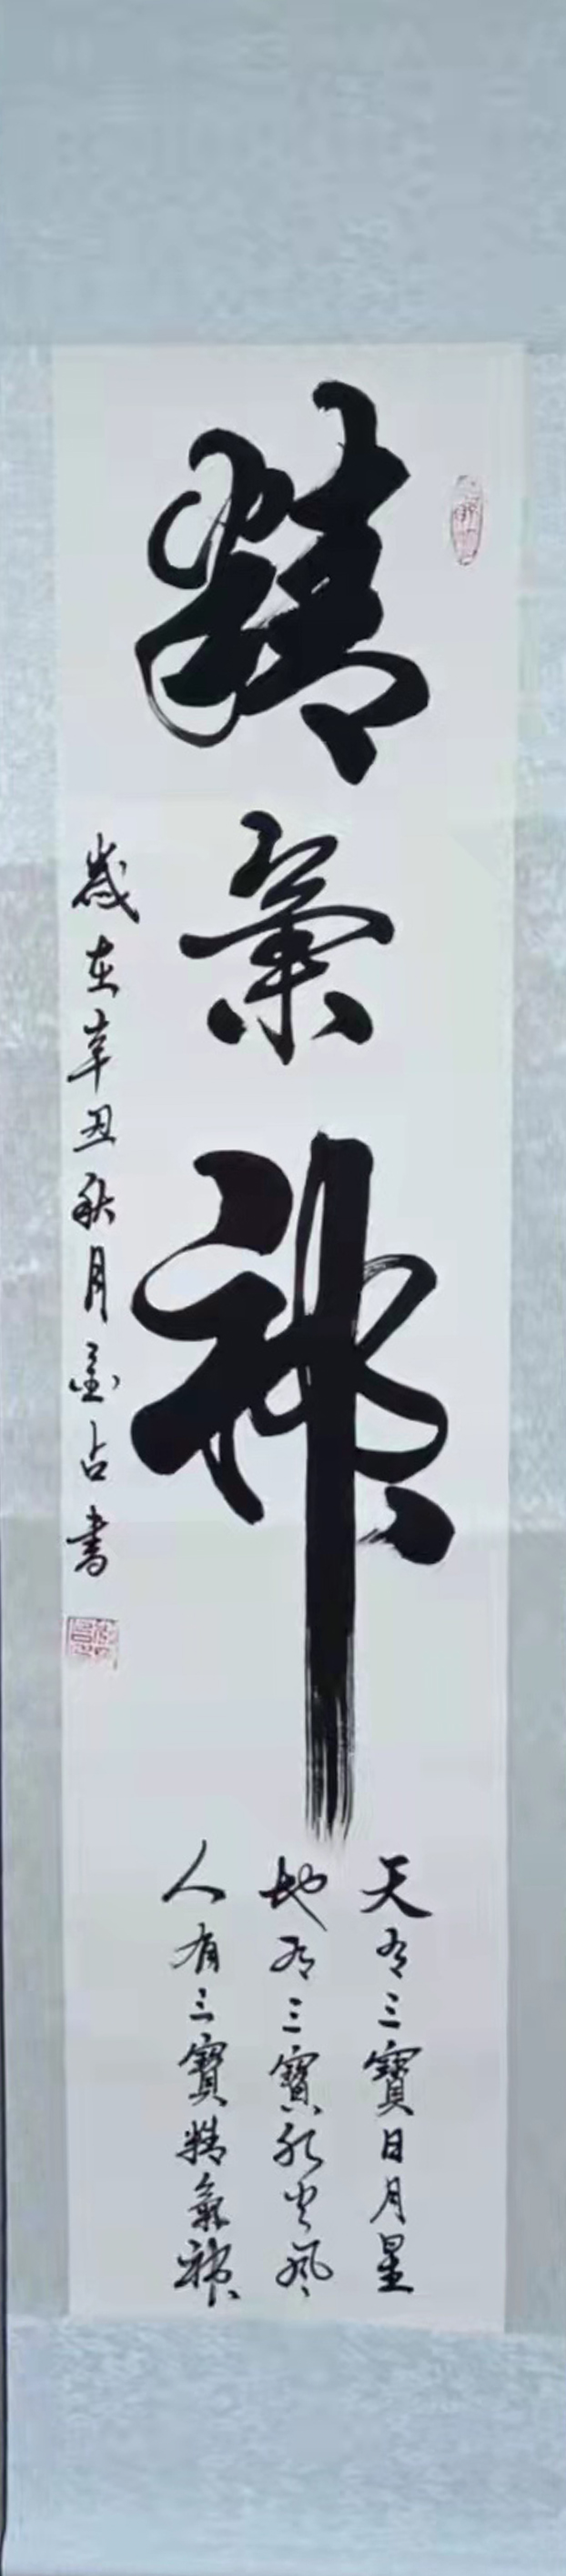 精氣神
天有三寶日月星
地有三寶水火風
人有三寶精氣神
歲在辛丑秋月金占書